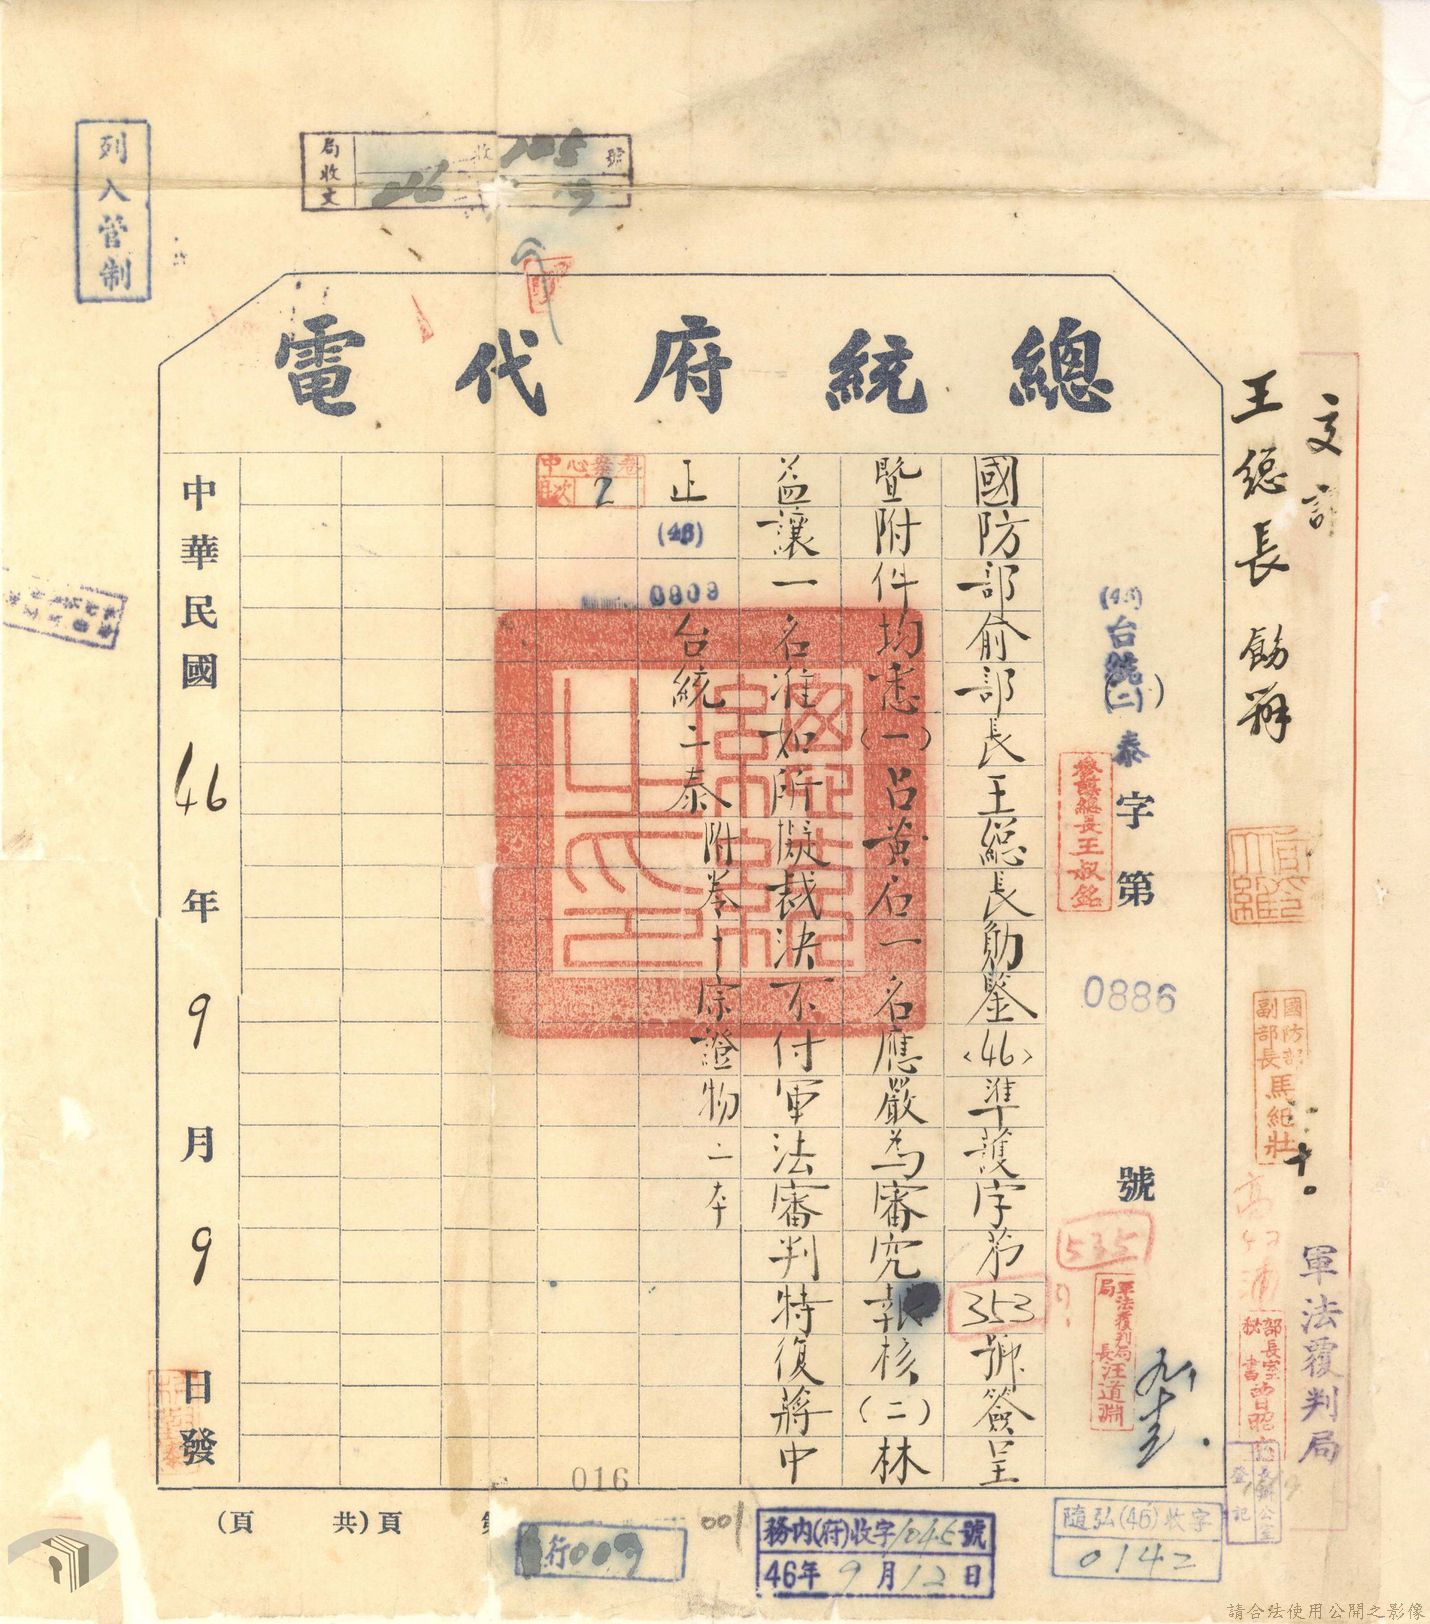 列入管制
局收文
收
號
總統府代電
交
王總長飭辦
(46)台統(二)泰字第0886號
參謀總長王叔銘
535
軍法覆判局局長汪道淵
國防部俞部長王總長勛鑒(46)準護字第353號簽呈
暨附件均悉(一)呂黃石一名應嚴為審究報核(二)林
益讓一名准如所擬裁決不付軍法審判特復蔣中
正(46) 0909 台統二泰附卷十宗證物二本
中心案卷
目次 2
中華民國46年9月9日發
國防部副部長馬紀壯
部長室秘書
軍法覆判局
登記
016
(頁 共)頁
001
行009
務內(府)收字1045號
46年9月12日
隨弘(46)收字
0142
請合法使用公開之影像